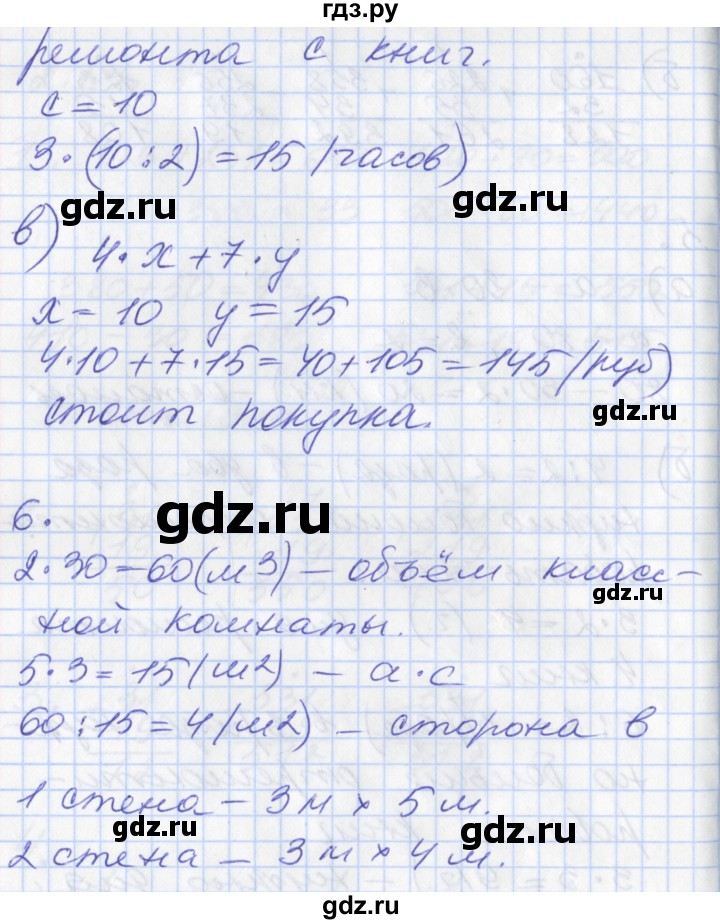 гдз.ру
ремонта с книг.
с = 10
3·(10:2) = 15 (часов)
gdz.ru
gdz.ru
в) 4·x + 7·y
x = 10 y = 15
4·10 + 7·15 = 40 + 105 = 145 (руб)
стоит покупка.
gdz.ru
6.
gdz.ru
2·30 = 60 (м3) – объём класс-
gdz.ru
ной комнаты.
5·3 = 15 (м2) – а·с
gdz.ru
60:15 = 4 (м2) – сторона в
1 стена – 3 м × 5 м.
gdz.ru
gdz.ru
2 стена – 3 м × 4 м.
gdz.ru